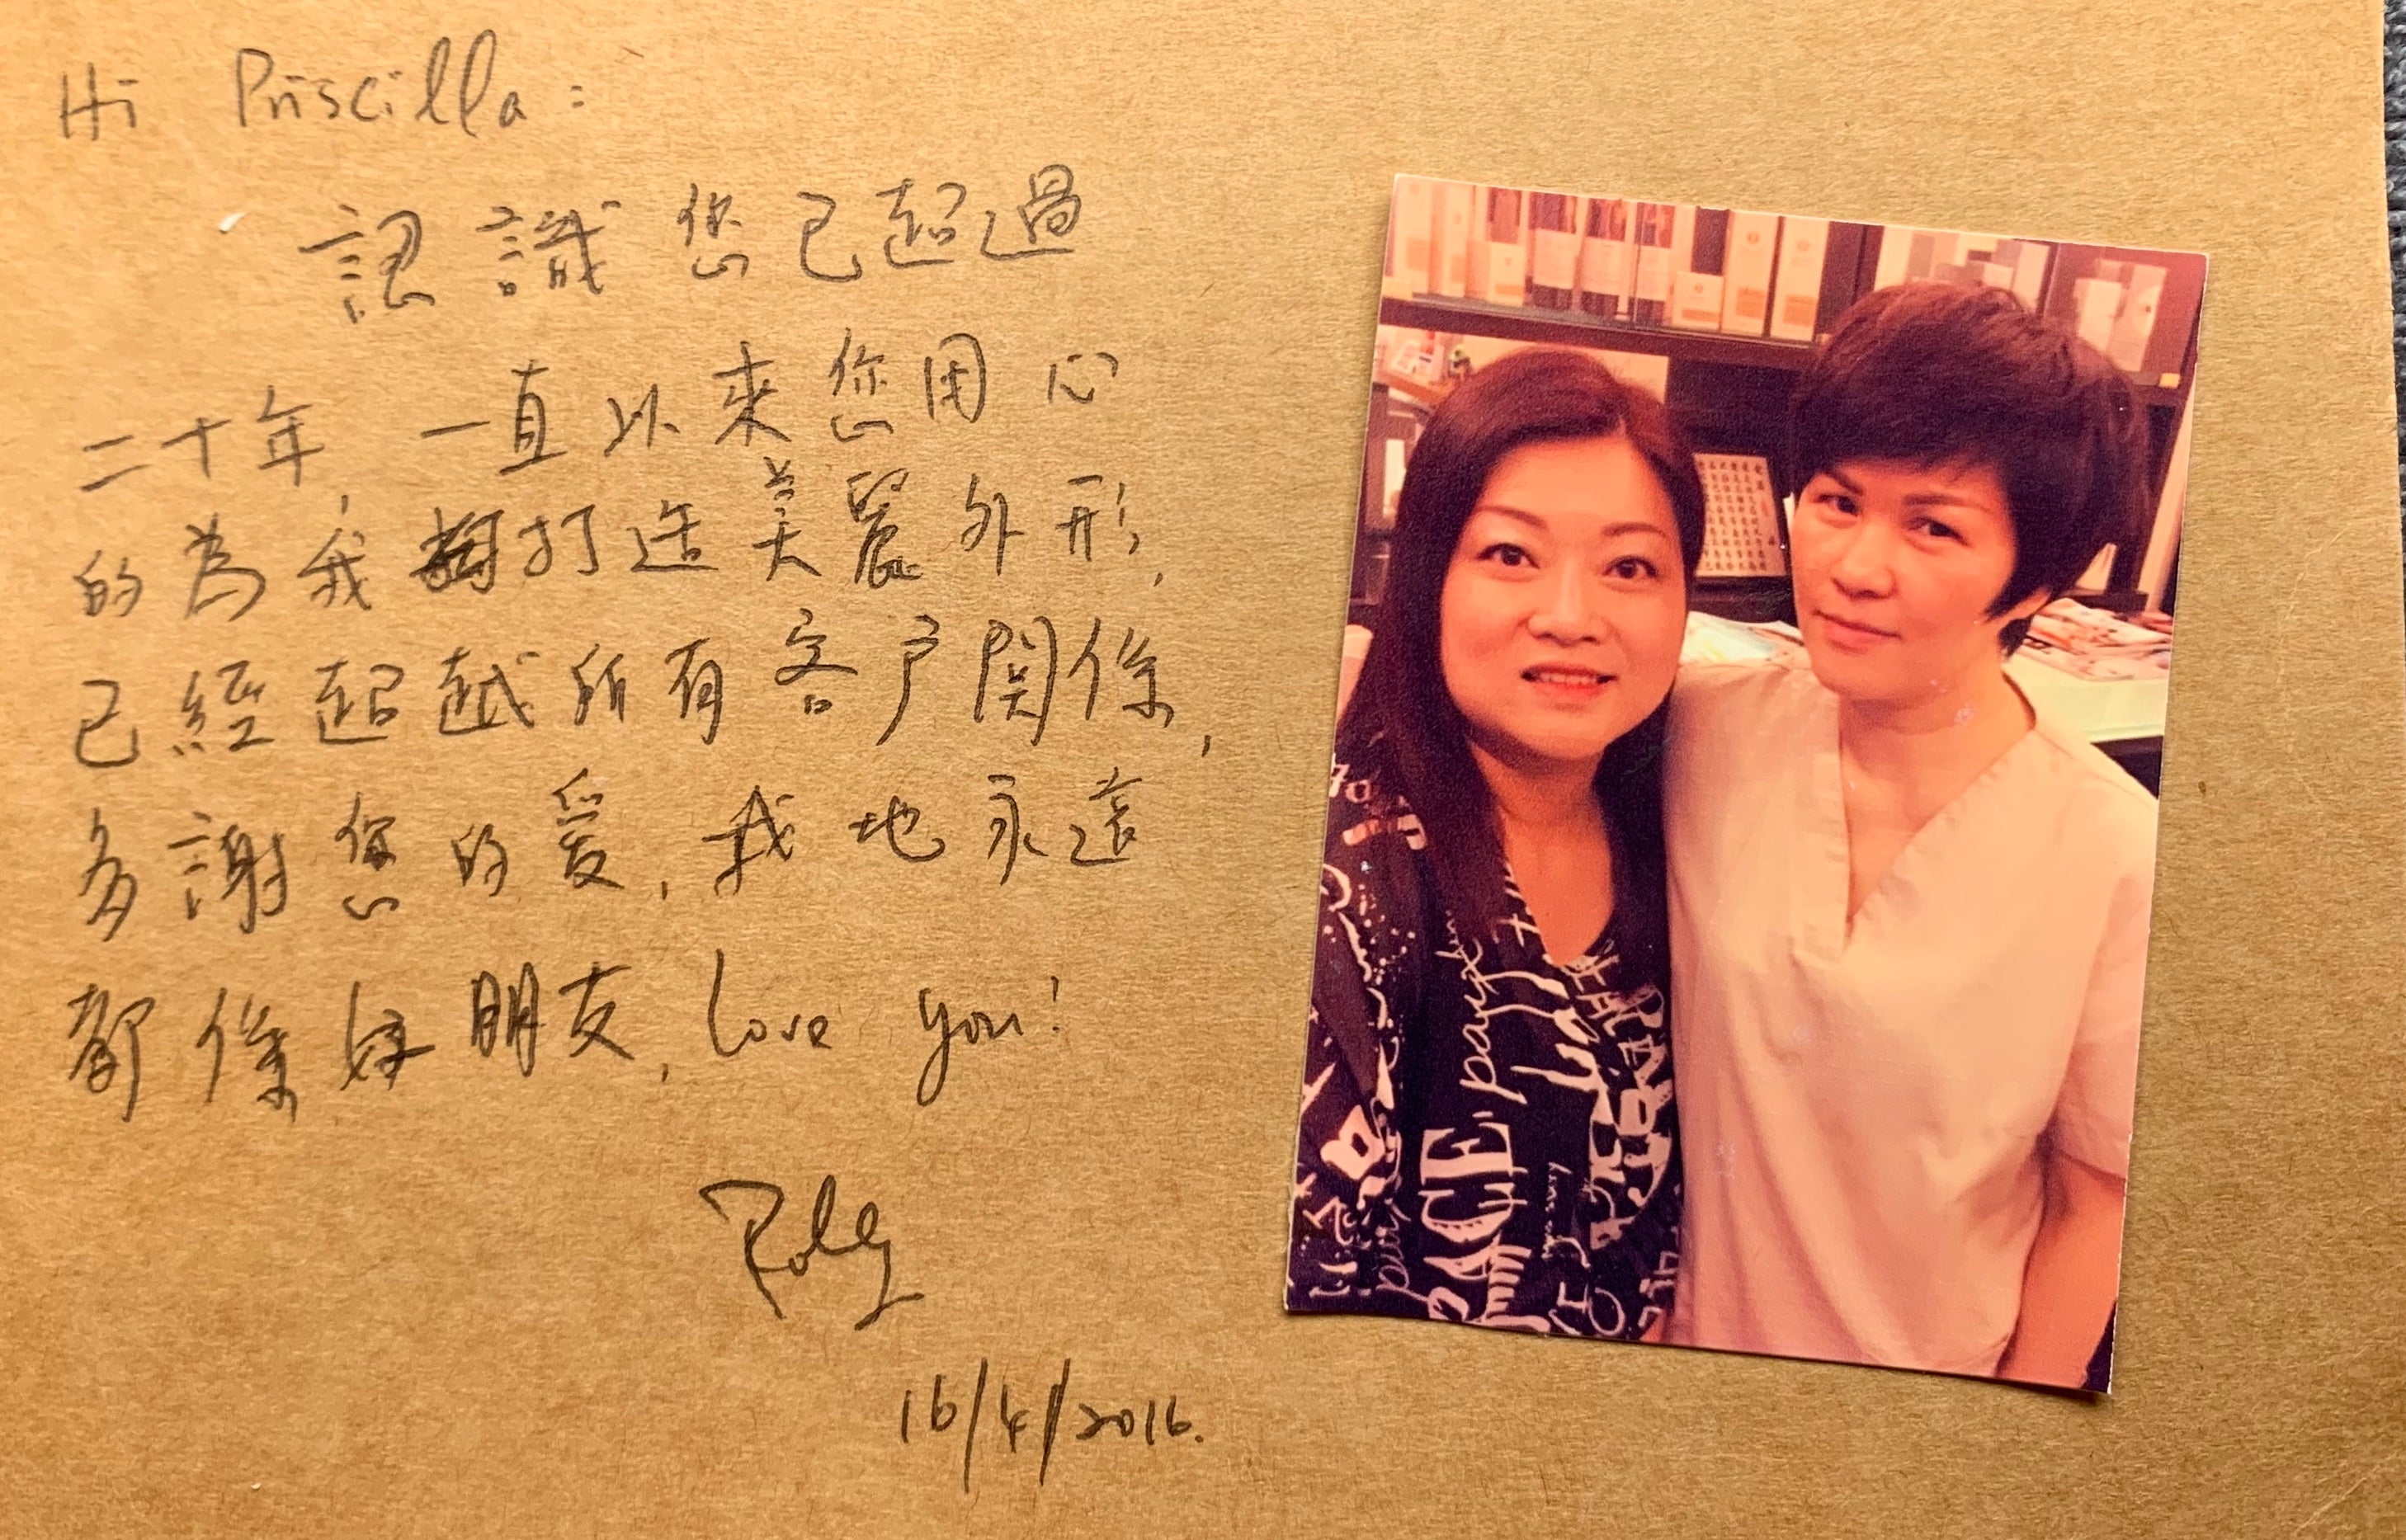 Hi Priscilla:
認識您已超過
二十年, 一直以來您用心
的為我打造美麗外形,
已經超越所有客戶関係,
多謝您的愛, 我地永遠
都係好朋友, Love you!
16/4/2016.
PEACE